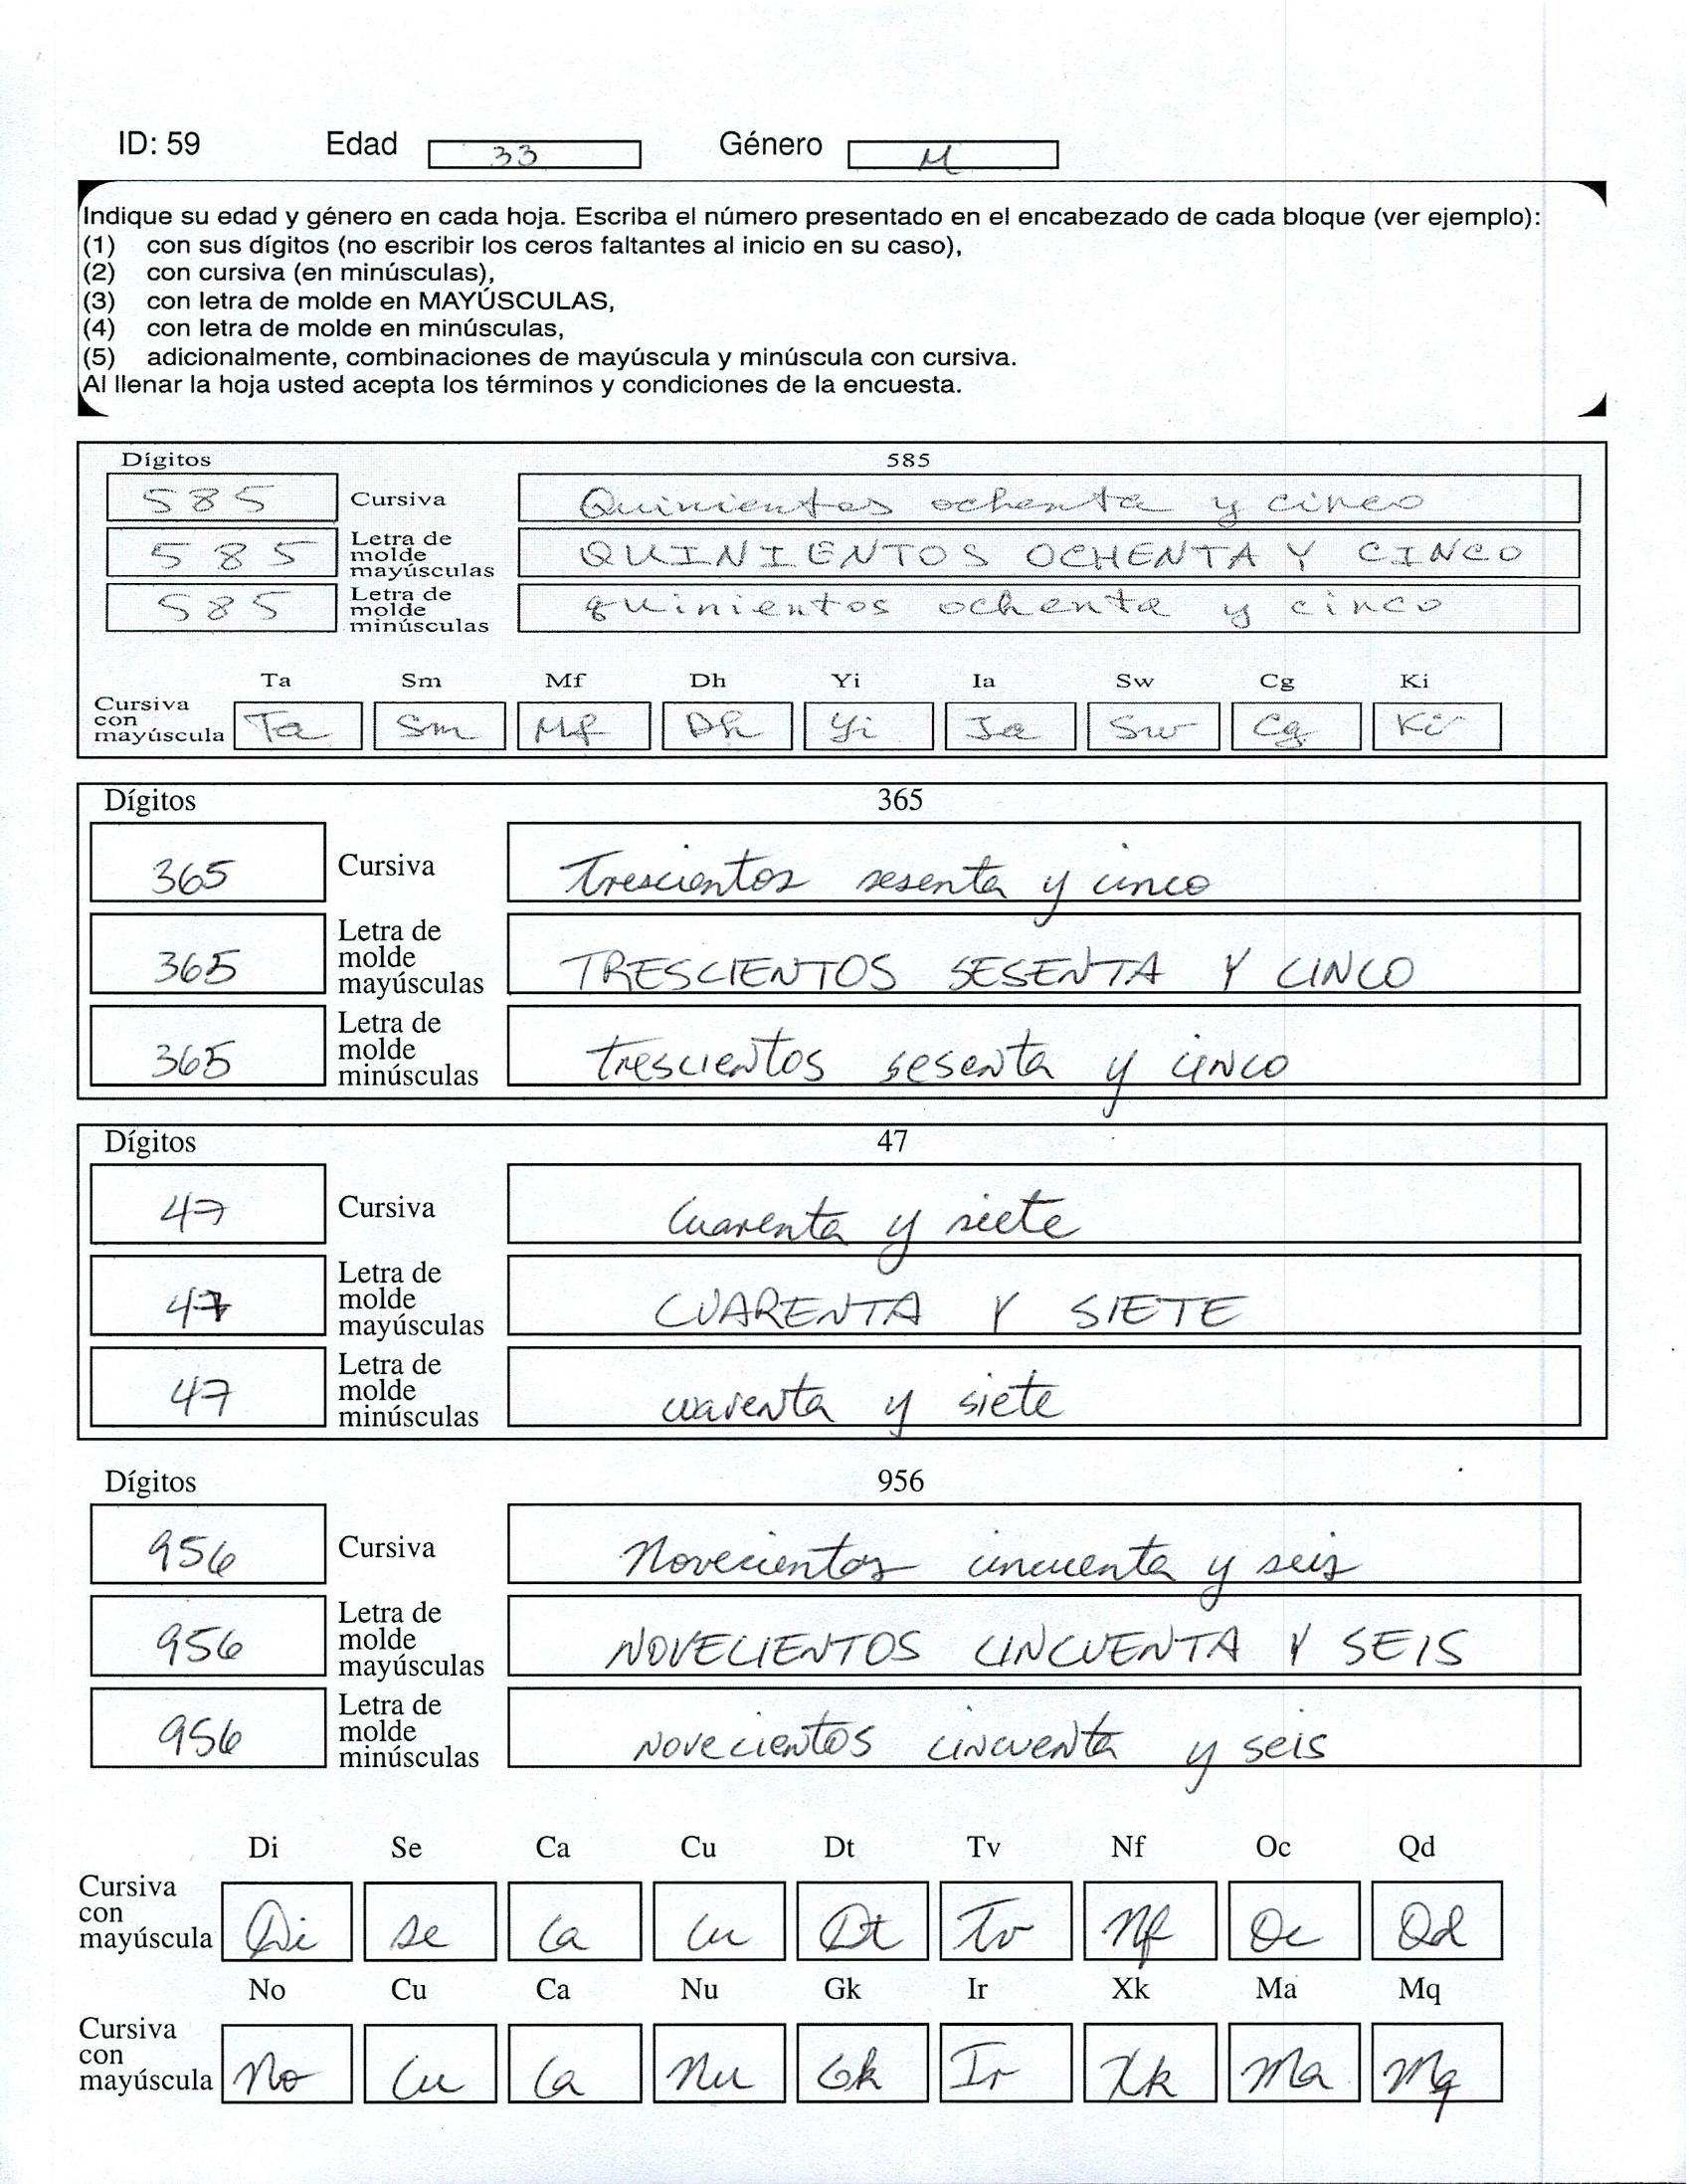 ID: 59 Edad 33 Género M
Indique su edad y género en cada hoja. Escriba el número presentado en el encabezado de cada bloque (ver ejemplo):
(1) con sus dígitos (no escribir los ceros faltantes al inicio en su caso),
(2) con cursiva (en minúsculas),
(3) con letra de molde en MAYÚSCULAS,
(4) con letra de molde en minúsculas,
(5) adicionalmente, combinaciones de mayúscula y minúscula con cursiva.
Al llenar la hoja usted acepta los términos y condiciones de la encuesta.
Dígitos 585
585 Cursiva Quinientos ochenta y cinco
585 Letra de molde mayúsculas QUINIENTOS OCHENTA Y CINCO
585 Letra de molde minúsculas quinientos ochenta y cinco
Ta Sm Mf Dh Yi Ia Sw Cg Ki
Cursiva con mayúscula Ta Sm Mf Dh Yi Ia Sw Cg Ki
Dígitos 365
365 Cursiva Trescientos sesenta y cinco
365 Letra de molde mayúsculas TRESCIENTOS SESENTA Y CINCO
365 Letra de molde minúsculas trescientos sesenta y cinco
Dígitos 47
47 Cursiva Cuarenta y siete
47 Letra de molde mayúsculas CUARENTA Y SIETE
47 Letra de molde minúsculas cuarenta y siete
Dígitos 956
956 Cursiva Novecientos cincuenta y seis
956 Letra de molde mayúsculas NOVECIENTOS CINCUENTA Y SEIS
956 Letra de molde minúsculas novecientos cincuenta y seis
Di Se Ca Cu Dt Tv Nf Oc Qd
Cursiva con mayúscula Di Se Ca Cu Dt Tv Nf Oc Qd
No Cu Ca Nu Gk Ir Xk Ma Mq
Cursiva con mayúscula No Cu Ca Nu Gk Ir Xk Ma Mq